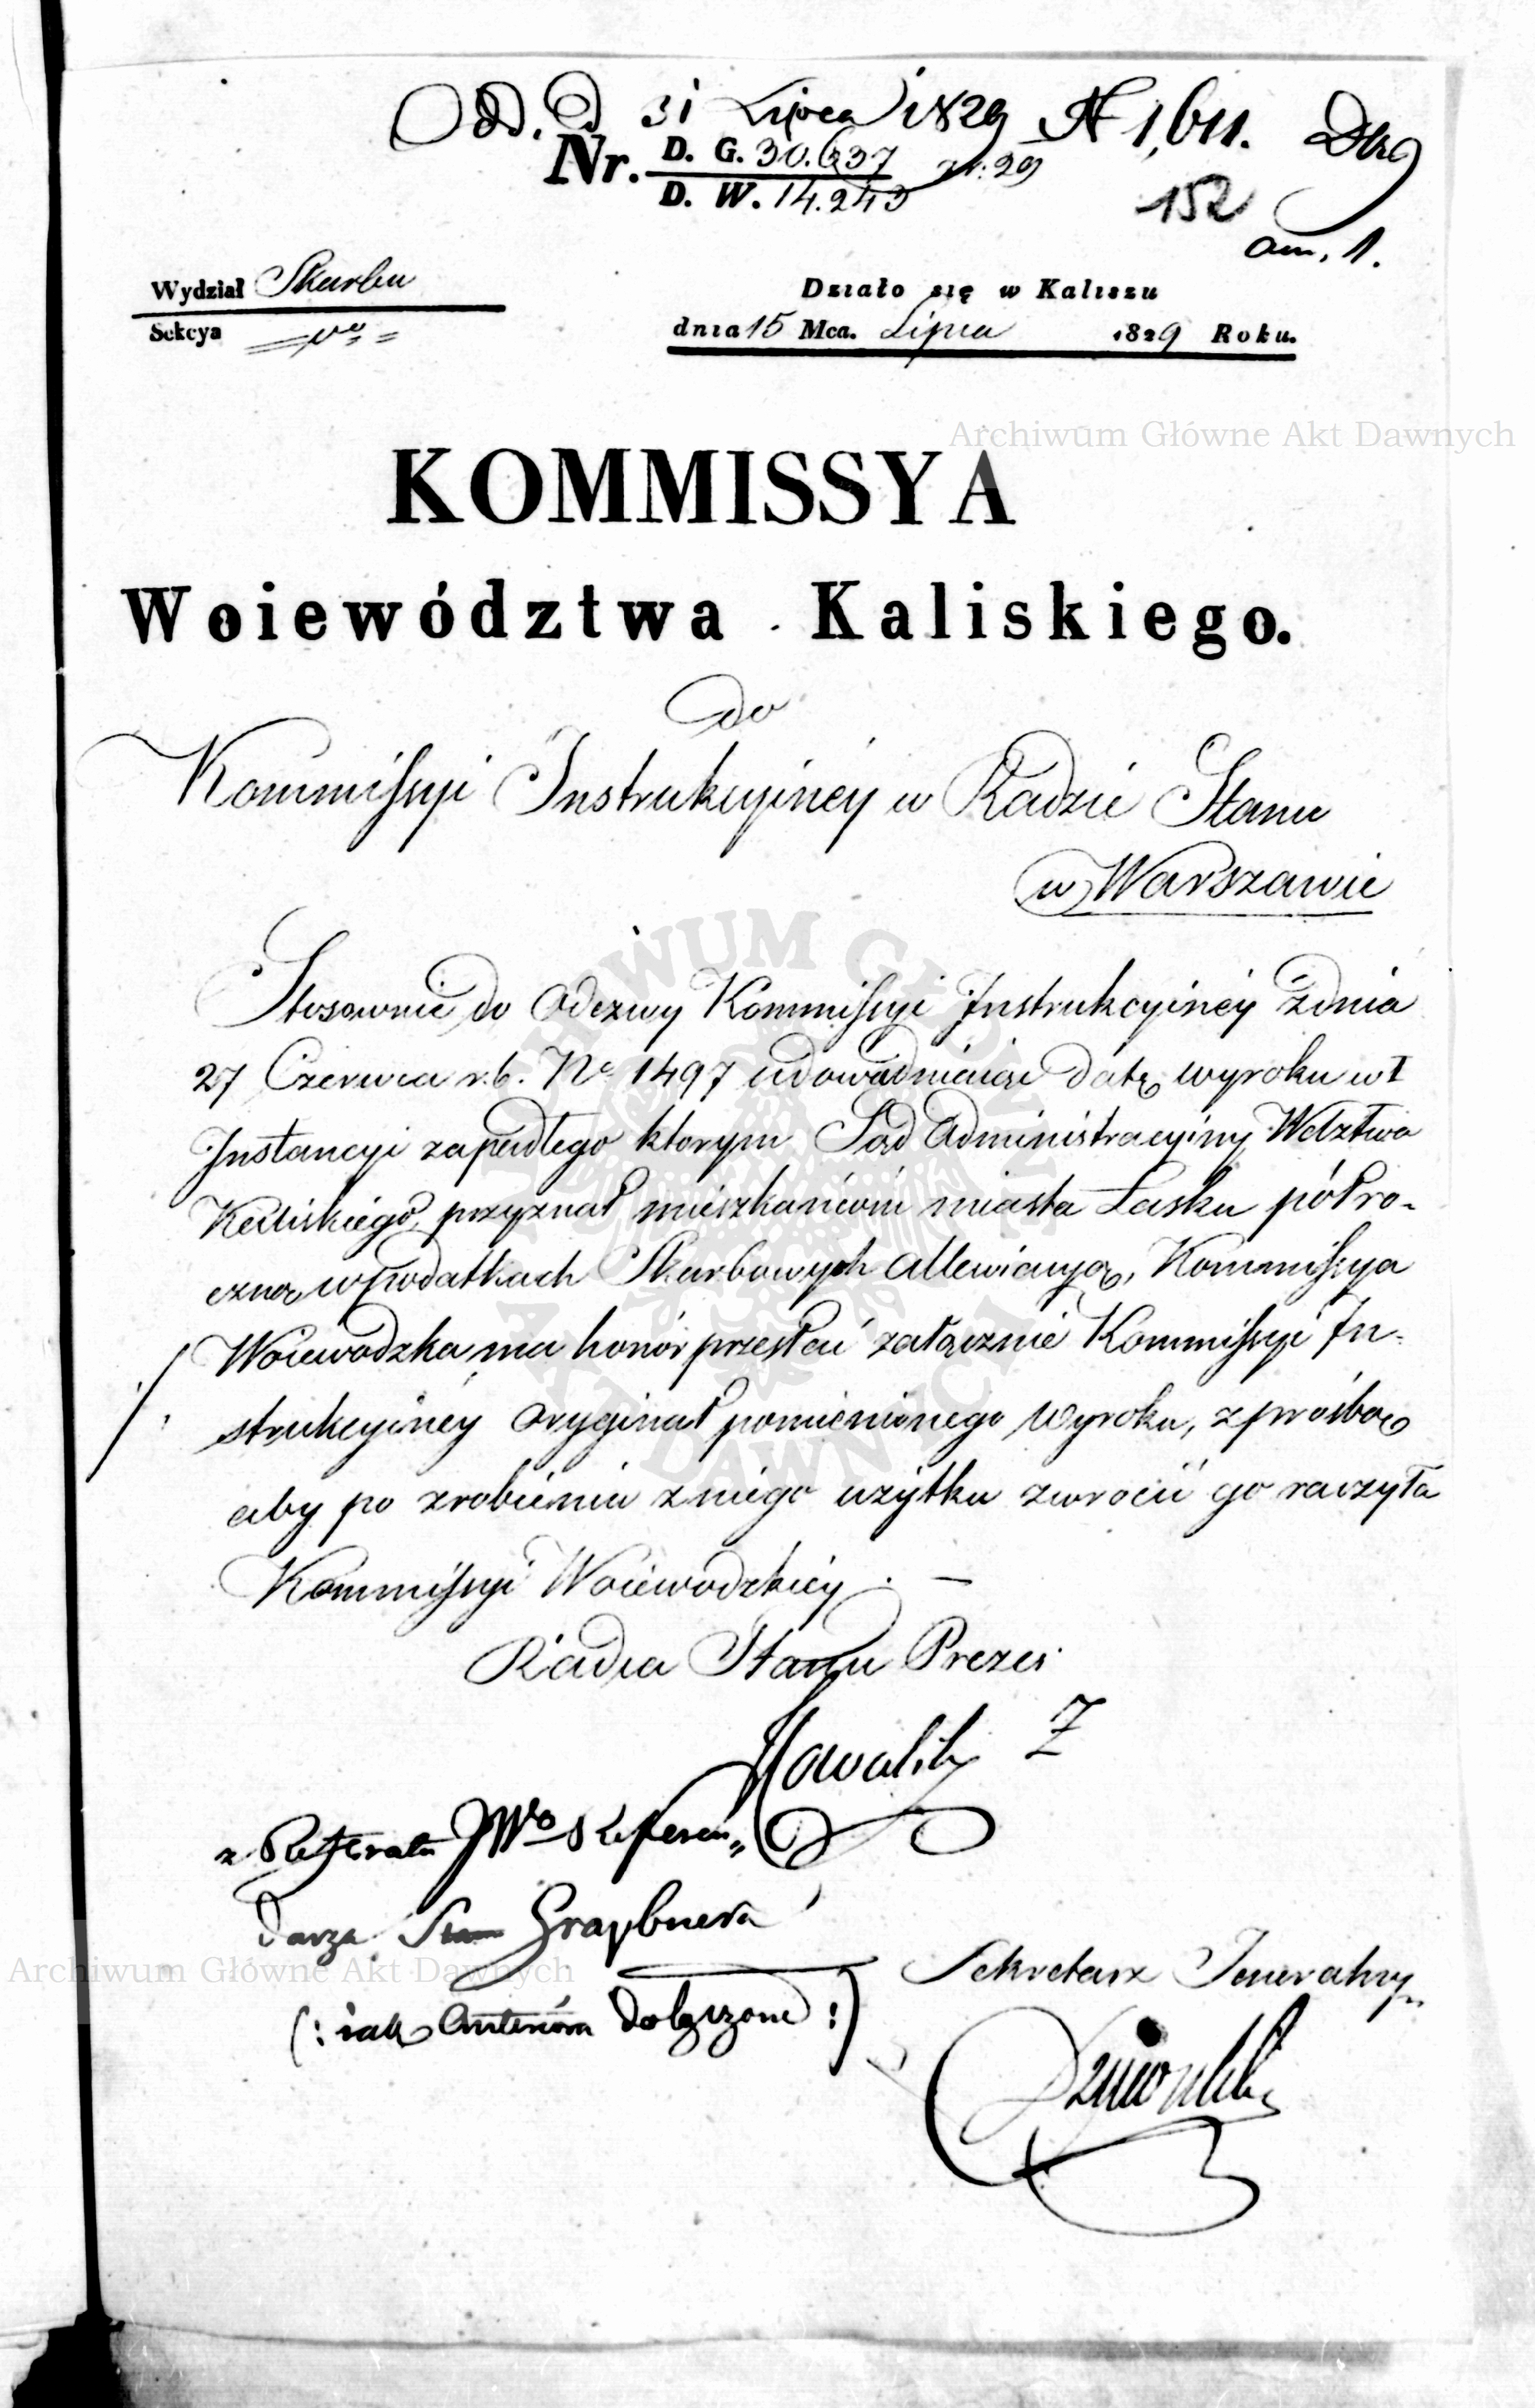 Odd. d 31 Lipca 1829 N 1,611.
Nr. D. G. 30.637
D. W. 14.243
152
an. 1.
Wydział Skarbu
Sekcya
Działo się w Kaliszu
dnia 15 Mca. Lipca 1829 Roku.
KOMMISSYA
Woiewództwa Kaliskiego.
do
Kommissyi Instrukcyiney w Radzie Stanu
w Warszawie
Stosownie do Odezwy Kommissyi Instrukcyiney z dnia
27 Czerwca r. b. No 1497 udowadniaiąc datę wyroku w I
Instancyi zapadłego ktorym Sąd Administracyiny Wdztwa
Kaliskiego, przyznał mieszkańcom miasta Łasku półro-
czną w podatkach Skarbowych Allewiacyą, Kommissya
Woiewodzka, ma honór przesłać załącznie Kommissyi In-
strukcyiney Oryginał pomienionego Wyroku, z prośbą
aby po zrobieniu z niego użytku zwrocić go raczyła
Kommissyi Woiewodzkiey. —
Radca Stanu Prezes
z Referatu JWo Referen„
darza Stan Graybnera
(: iako Anteriora dołączone :)
Sekretarz Jeneralny
Archiwum Główne Akt Dawnych
Archiwum Główne Akt Dawnych
ARCHIWUM GŁÓWNE AKT DAWNYCH